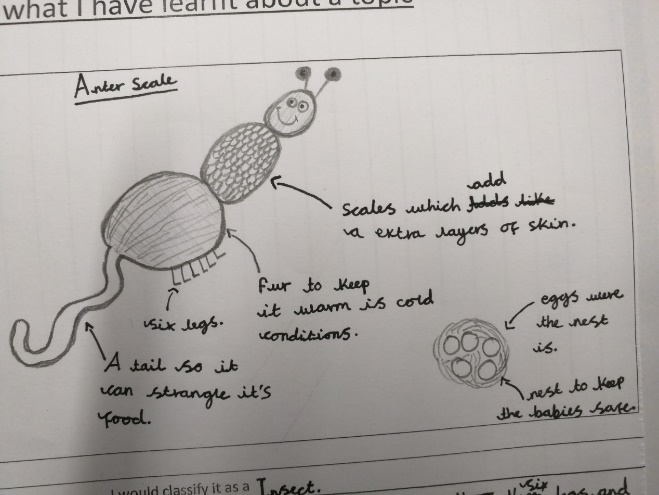 what I have learnt about a topic
Anter Scale
add
Scales which
a extra layers of skin.
Fur to keep
it warm is cold
conditions.
six legs.
A tail so it
can strangle it's
food.
eggs were
the nest
is.
nest to keep
the babies safe.
I would classify it as a Insect.
six
legs and